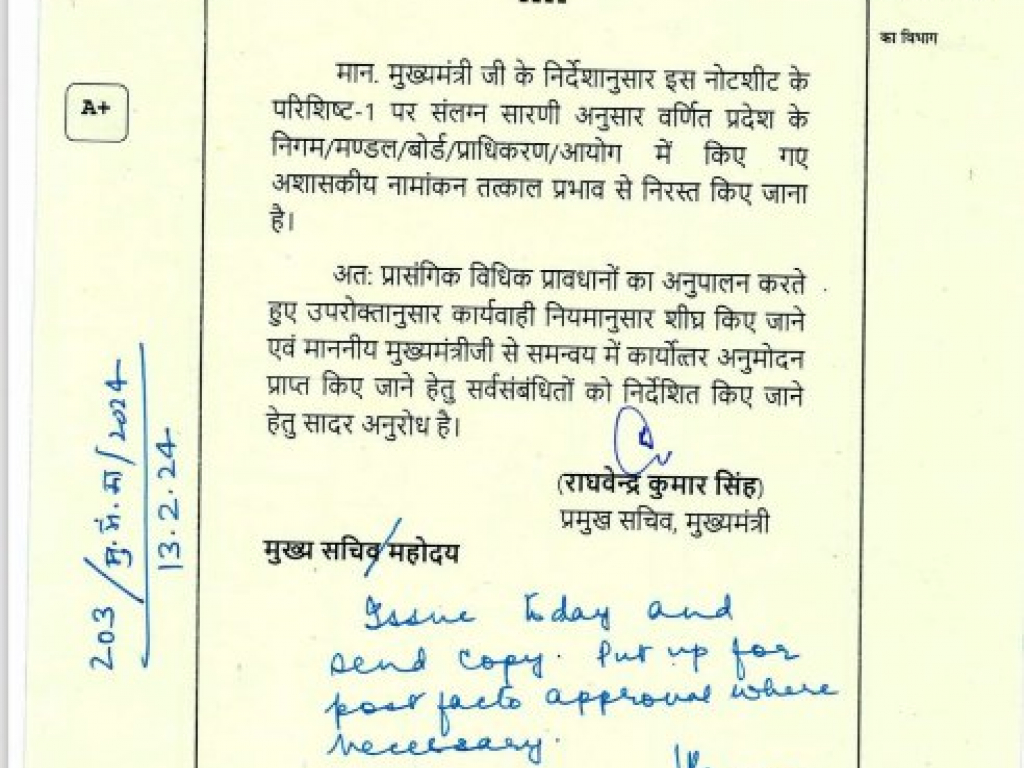 का विभाग
A+
मान. मुख्यमंत्री जी के निर्देशानुसार इस नोटशीट के
परिशिष्ट-1 पर संलग्न सारणी अनुसार वर्णित प्रदेश के
निगम/मण्डल/बोर्ड/प्राधिकरण/आयोग में किए गए
अशासकीय नामांकन तत्काल प्रभाव से निरस्त किए जाना
है।
अत: प्रासंगिक विधिक प्रावधानों का अनुपालन करते
हुए उपरोक्तानुसार कार्यवाही नियमानुसार शीघ्र किए जाने
एवं माननीय मुख्यमंत्रीजी से समन्वय में कार्योत्तर अनुमोदन
प्राप्त किए जाने हेतु सर्वसंबंधितों को निर्देशित किए जाने
हेतु सादर अनुरोध है।
(राघवेन्द्र कुमार सिंह)
प्रमुख सचिव, मुख्यमंत्री
मुख्य सचिव महोदय
203/मु.मं.मा/2024
13.2.24
Issue today and
send copy. Put up for
post facto approval where
necessary.